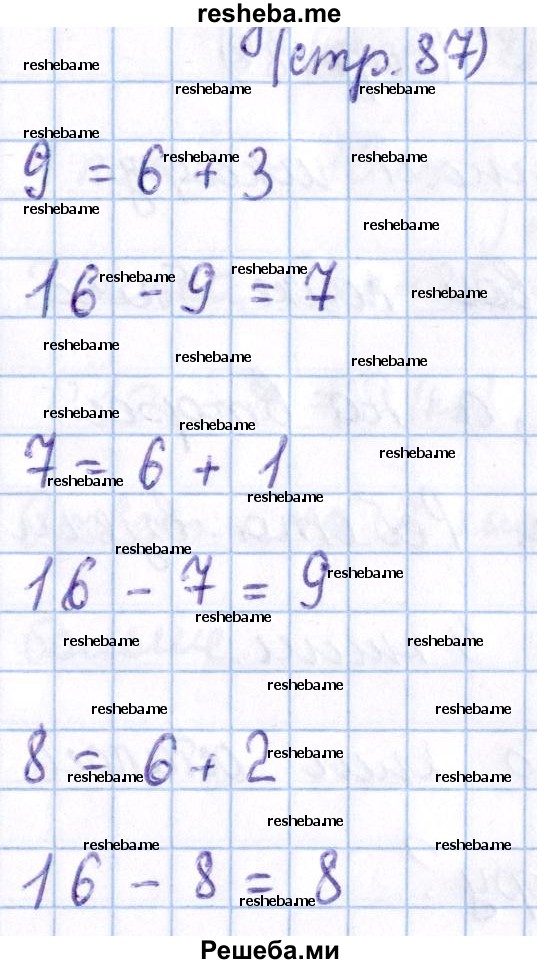 resheba.me
(стр. 87)
resheba.me
resheba.me resheba.me
resheba.me
resheba.me resheba.me
9 = 6 + 3
resheba.me
resheba.me
resheba.me resheba.me
16 - 9 = 7
resheba.me
resheba.me
resheba.me resheba.me
resheba.me
resheba.me
resheba.me
7 = 6 + 1
resheba.me
resheba.me
resheba.me
resheba.me
16 - 7 = 9
resheba.me
resheba.me resheba.me
resheba.me
resheba.me resheba.me
resheba.me
8 = 6 + 2
resheba.me resheba.me
resheba.me
resheba.me resheba.me
16 - 8 = 8
resheba.me
Решеба.ми